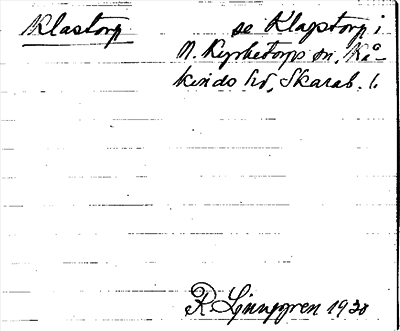 Klastorp se Klagstorp i
N. Kyrketorps sn, Kå-
kinds hd, Skarab. l.
R. Ljunggren 1930